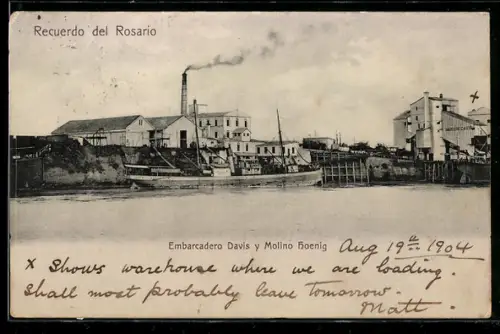 Recuerdo del Rosario
x
Embarcadero Davis y Molino Hoenig
Aug 19th 1904
x Shows warehouse where we are loading.
Shall most probably leave Tomorrow.
Matt.